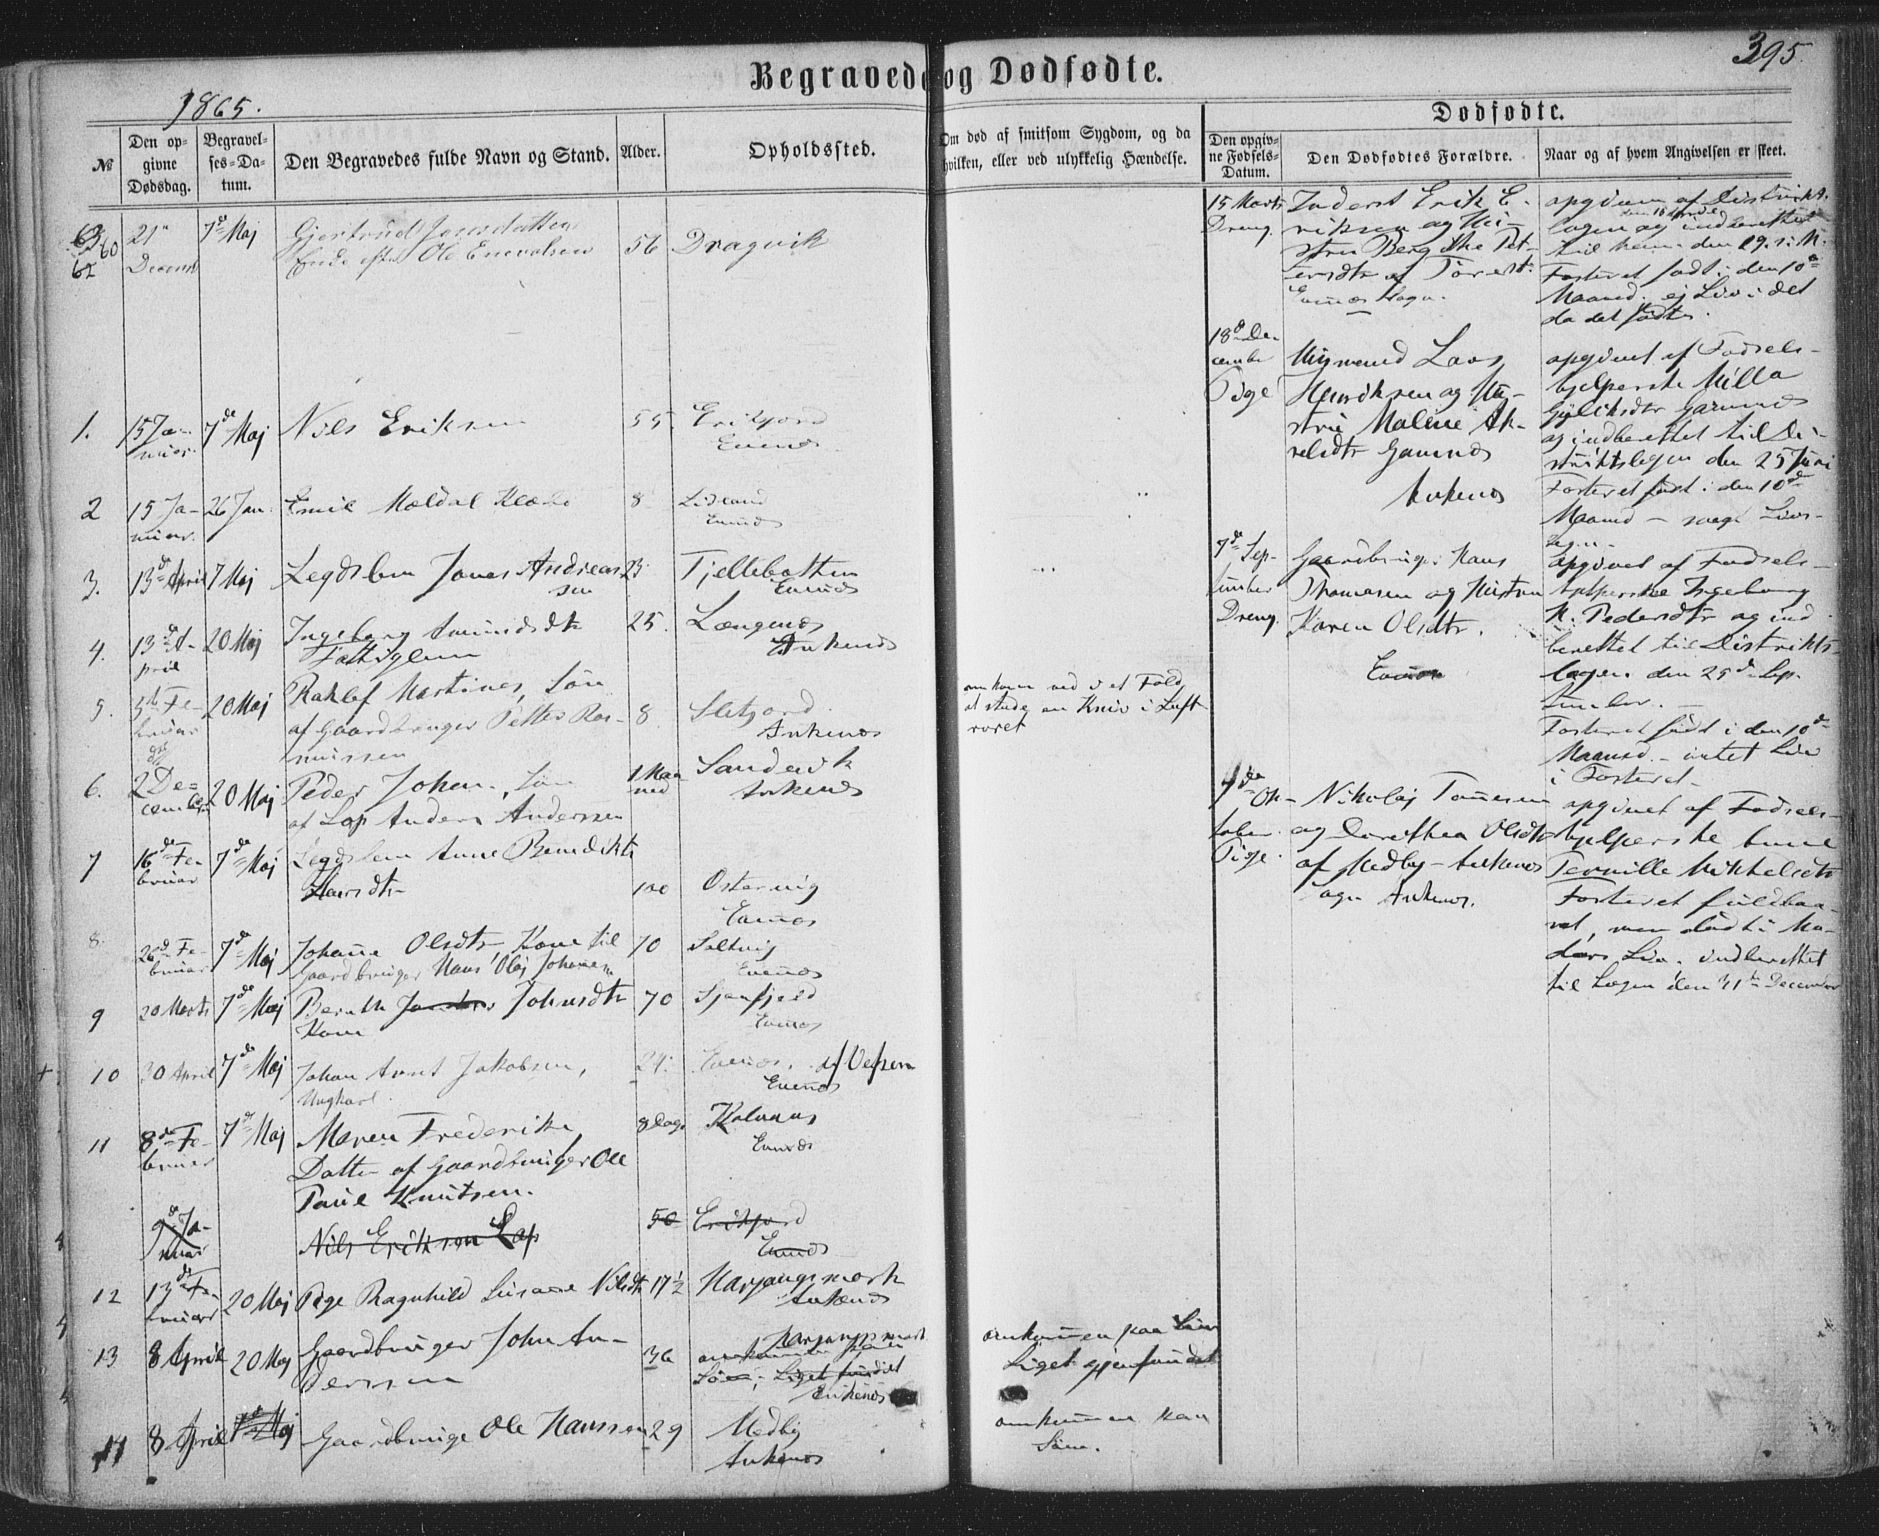 395.
Begravede og Dødfødte.
1865.
Dødfødte.
№
Den opgivne Dødsdag.
Begravelses-Datum.
Den Begravedes fulde Navn og Stand.
Alder.
Opholdssted.
Om død af smitsom Sygdom, og da hvilken, eller ved ulykkelig Hændelse.
Den opgivne Fødsels-Datum.
Den Dødfødtes Forældre.
Naar og af hvem Angivelsen er skeet.
63 60
21
Decemb
7de Maj
Gjertrud Jonsdatter
Enke efter Ole Enevoldsen
56
Dragvik
1.
15 Ja-
nuar.
7de Maj
Nils Eriksen
55
Erikjord
Evenæs
2
15 Ja-
nuar.
26 Jan.
Emil Mældal
8
Lidland
Evenæs
3.
13de April
7 Maj
Legdslem Jonas Andreas
sen
23
Tjellebotten
Evenæs
4.
13de A-
pril
20 Maj
Ingeborg Amundsdtr
Fattiglem
25.
Længenæs
Ankenæs
5.
5te Fe-
bruar
20 Maj
Martines, Søn
af Gaardbruger Petter Ras-
mussen
8
Sletjord
Ankenæs
omkom ved i et Fald
at støde en Kniv i Luft
røret
6.
2 De-
cember
20 Maj
Peder Johan, Søn
af Lap Anders Anderssen
1 Maa
ned
Sandevik
Ankenæs
7
16de Fe-
bruar
7de Maj
Legdslem Anne Benedikte
Larsdtr
100
Østervig
Evenæs
8.
26de Fe-
bruar
7de Maj
Johanne Olsdtr, Kone til
Gaardbruger Hans Olaj Johansen
70
Saltvig
Evenæs
9
20 Marts
7de Maj
Berith Johnsdtr
Kone
70
Evenæs
10
30 April
7de Maj
Johan Arnt Jakobsen,
Ungkarl.
24.
Evenæs. af Vefsen
Evenæs
11
8de Fe-
bruar
7de Maj
Maren Frederikke
Datter af Gaardbruger Ole
Paul Knutsen.
8 Dage
Kolvaas
Evenæs
9de Ja-
nuar
Nils Eriksen Lap
50
Erikjord
Evenæs
12
13de Fe-
bruar
20 Maj
Pige Ragnhild Susanne Nilsdtr
17½
Harjangsmark
Ankenæs
13
8 April
20 Maj
Gaardbruger John An-
derssen
36
Harjangsmark
omkommen paa
Søen; Liget fundet
Ankenæs
omkommen paa Søen
Liget gjenfundet
14
8 April
7de Maj
Gaardbruger Ole Hanssen
29
Medby
Ankenæs
omkommen paa
Søen.
15 Marts
Dreng.
Inderst Erik E-
riksen og Hu-
stru Pet-
ersdtr af
Evenæs Sogn.
opgiven af Distrikts-
lægen og indberettet
til ham den 29. s. M.
Fosteret født i den 10de
Maaned. ej Liv i det
da det fødtes.
18de De-
cember
Pige
Ugmend Laas
Henriksen og Hu-
stru Malene Ak-
selsdtr Gamnes
Ankenæs
opgivet af Fødsels-
hjelperske Milla
Gamnes
og indberettet til Di-
striktslægen den 25 Juni
Fosteret født i den 10de
Maaned — svage Livs-
tegn.
7de Sep-
tember
Dreng
Gaardbruger Hans
Thomesen og Hustru
Karen Olsdtr.
Evenæs
opgivet af Fødsels-
hjelperske Ingeborg
K. Pedersdtr og ind
berettet til Distrikts-
lægen den 25de Sep-
tember. —
Fosteret født i den 10de
Maaned. — intet Liv
i Fosteret —
4de Ok-
tober
Pige.
Nikolaj Tønnesen
og Dorethea Olsdtr
af Medby — Ankenæs
Sogn Ankenæs.
opgivet af Fødsels-
hjelperske
Pernille Mikkelsdtr
Fosteret fuldbaa-
ret, men død i Mo-
ders Liv. indberettet
til Lægen den 31te December